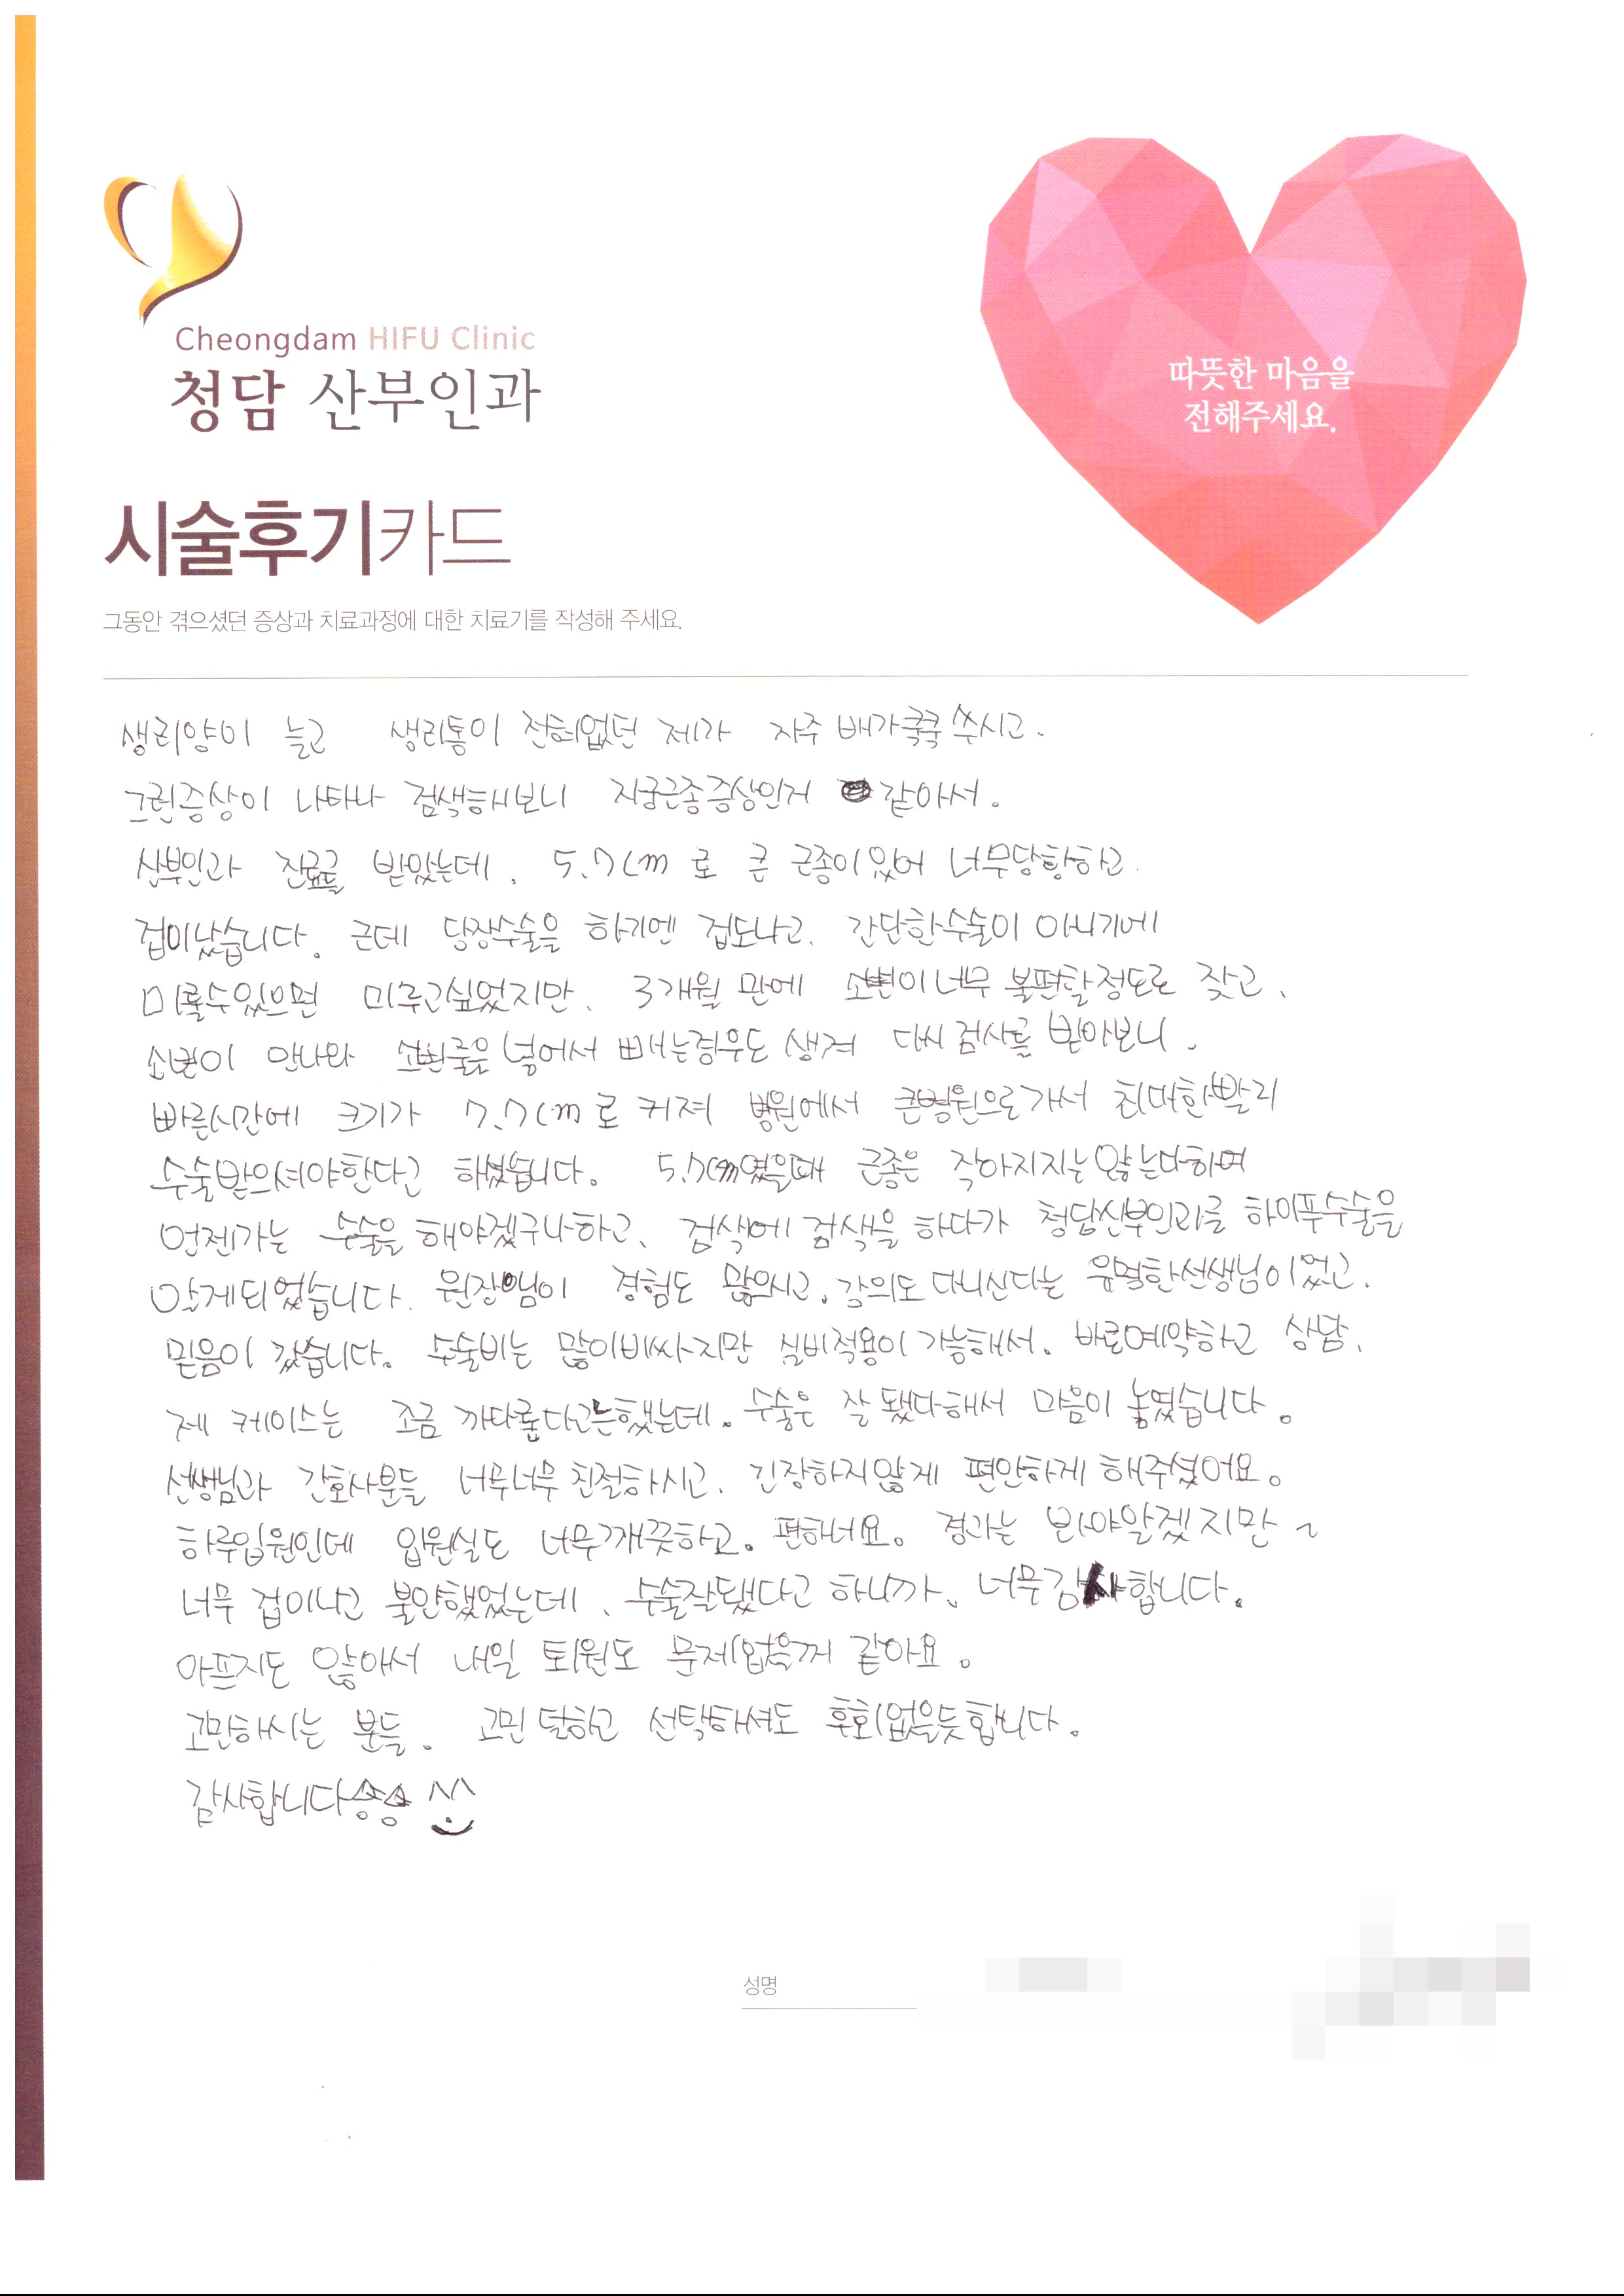 Cheongdam HIFU Clinic
청담 산부인과
따뜻한 마음을
전해주세요.
시술후기카드
그동안 겪으셨던 증상과 치료과정에 대한 치료기를 작성해 주세요.
생리양이 늘고 생리통이 전혀없던 제가 자주 배가쿡쿡 쑤시고.
그런증상이 나타나 검색해보니 자궁근종증상인거 같아서.
산부인과 진료를 받았는데. 5.7cm 로 큰 근종이있어 너무당황하고.
겁이났습니다. 근데 당장수술을 하기엔 겁도나고. 간단한수술이 아니기에
미룰수있으면 미루고싶었지만. 3개월 만에 소변이너무 불편할정도로 잦고.
소변이 안나와 소변줄을 넣어서 빼는경우도 생겨 다시검사를 받아보니.
빠른시간에 크기가 7.7cm로 커져 병원에서 큰병원으로가서 최대한빨리
수술받으셔야한다고 하셨습니다. 5.7cm였을때 근종은 작아지지는않는다하여
언젠가는 수술을 해야겠구나하고. 검색에 검색을 하다가 청담산부인과를 하이푸수술을
알게되었습니다. 원장님이 경험도 많으시고. 강의도다니신다는 유명한선생님이었고.
믿음이 갔습니다. 수술비는 많이비싸지만 실비적용이가능해서. 바로예약하고 상담.
제 케이스는 조금 까다롭다고는했는데. 수술은 잘됐다해서 마음이 놓였습니다.
선생님과 간호사분들 너무너무 친절하시고. 긴장하지않게 편안하게 해주셨어요.
하루입원인데 입원실도 너무깨끗하고. 편하네요. 경과는 봐야알겠지만~
너무 겁이나고 불안했었는데. 수술잘됐다고 하니까. 너무감사합니다.
아프지도 않아서 내일 퇴원도 문제없을꺼 같아요.
고민하시는 분들. 고민 덜하고 선택하셔도 후회없을듯합니다.
감사합니다 ^^
성명